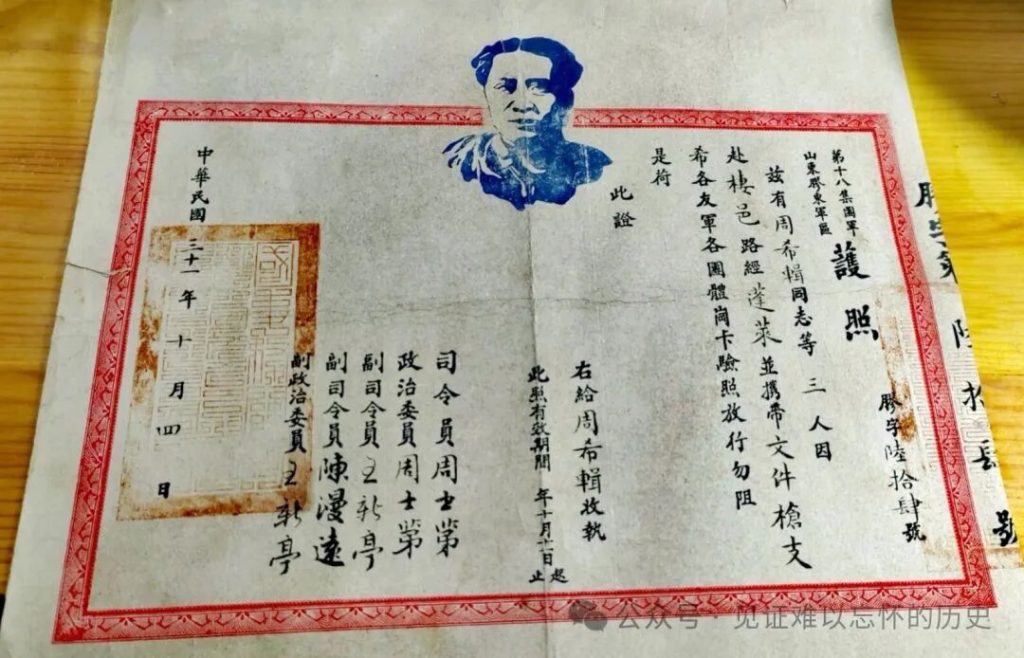 膠字第陸拾肆號
膠字陸拾肆號
第十八集團軍
山東膠東軍區
護照
兹有周希輯同志等三人因
赴棲邑路經蓬萊並携帶文件槍支
希各友軍各團體崗卡驗照放行勿阻
是荷
此證
右給周希輯收執
此照有效期間 年十月 日起止
司令員周士第
政治委員周士第
副司令員王新亭
副司令員陳漫遠
副政治委員王新亭
中華民國三十一年十月四日
公众号·见证难以忘怀的历史